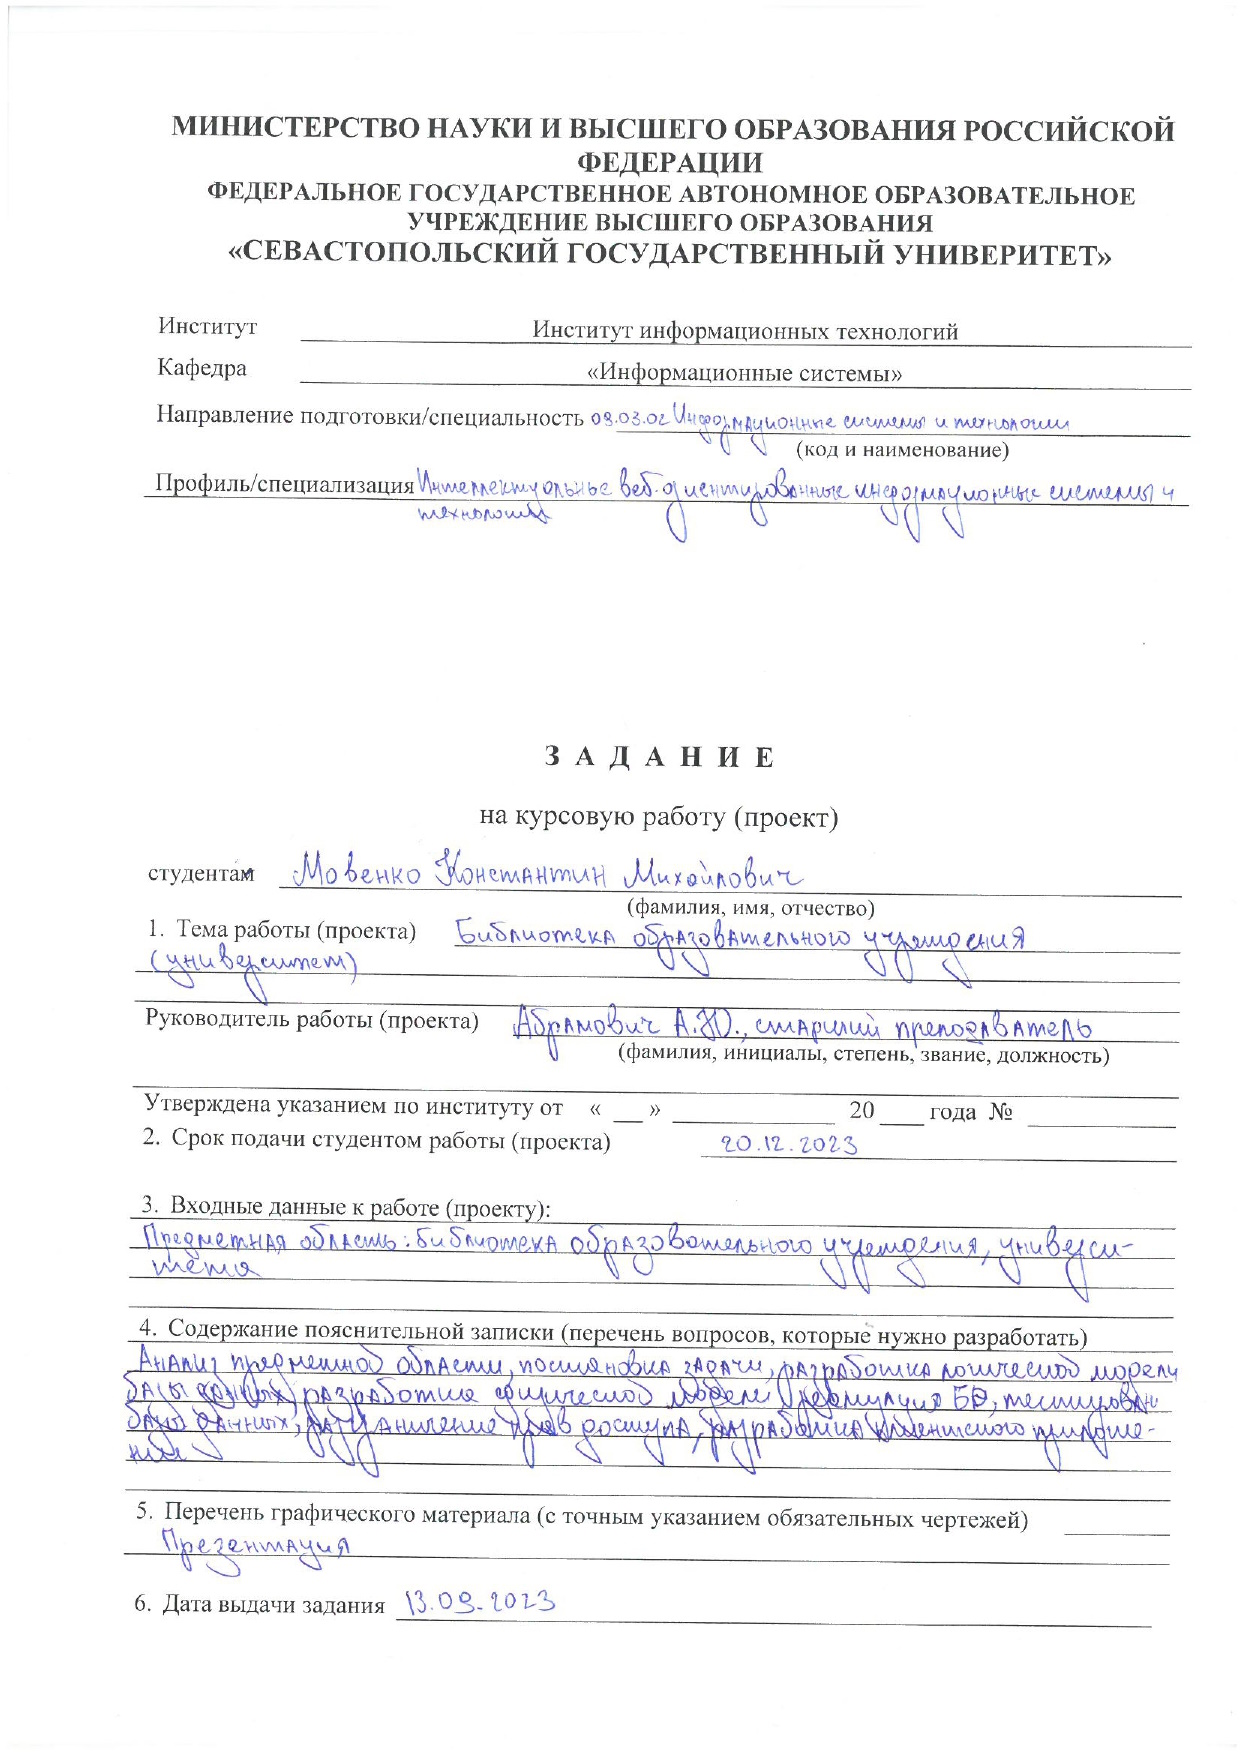 МИНИСТЕРСТВО НАУКИ И ВЫСШЕГО ОБРАЗОВАНИЯ РОССИЙСКОЙ
ФЕДЕРАЦИИ
ФЕДЕРАЛЬНОЕ ГОСУДАРСТВЕННОЕ АВТОНОМНОЕ ОБРАЗОВАТЕЛЬНОЕ
УЧРЕЖДЕНИЕ ВЫСШЕГО ОБРАЗОВАНИЯ
«СЕВАСТОПОЛЬСКИЙ ГОСУДАРСТВЕННЫЙ УНИВЕРИТЕТ»
Институт Институт информационных технологий
Кафедра «Информационные системы»
Направление подготовки/специальность 09.03.02 Информационные системы и технологии
(код и наименование)
Профиль/специализация Интеллектуальные веб-ориентированные информационные системы и
технологии
З А Д А Н И Е
на курсовую работу (проект)
студентам Мовенко Константин Михайлович
(фамилия, имя, отчество)
1. Тема работы (проекта) Библиотека образовательного учреждения
(университет)
Руководитель работы (проекта) Абрамович А.Ю., старший преподаватель
(фамилия, инициалы, степень, звание, должность)
Утверждена указанием по институту от « ___ » ____________ 20 ___ года № __________
2. Срок подачи студентом работы (проекта) 20.12.2023
3. Входные данные к работе (проекту):
Предметная область: библиотека образовательного учреждения, универси-
тета
4. Содержание пояснительной записки (перечень вопросов, которые нужно разработать)
Анализ предметной области, постановка задачи, разработка логической модели
базы данных, разработка физической модели, реализация БД, тестирован
базы данных, разграничение прав доступа, разработка клиентского приложе-
ния
5. Перечень графического материала (с точным указанием обязательных чертежей)
Презентация
6. Дата выдачи задания 13.09.2023